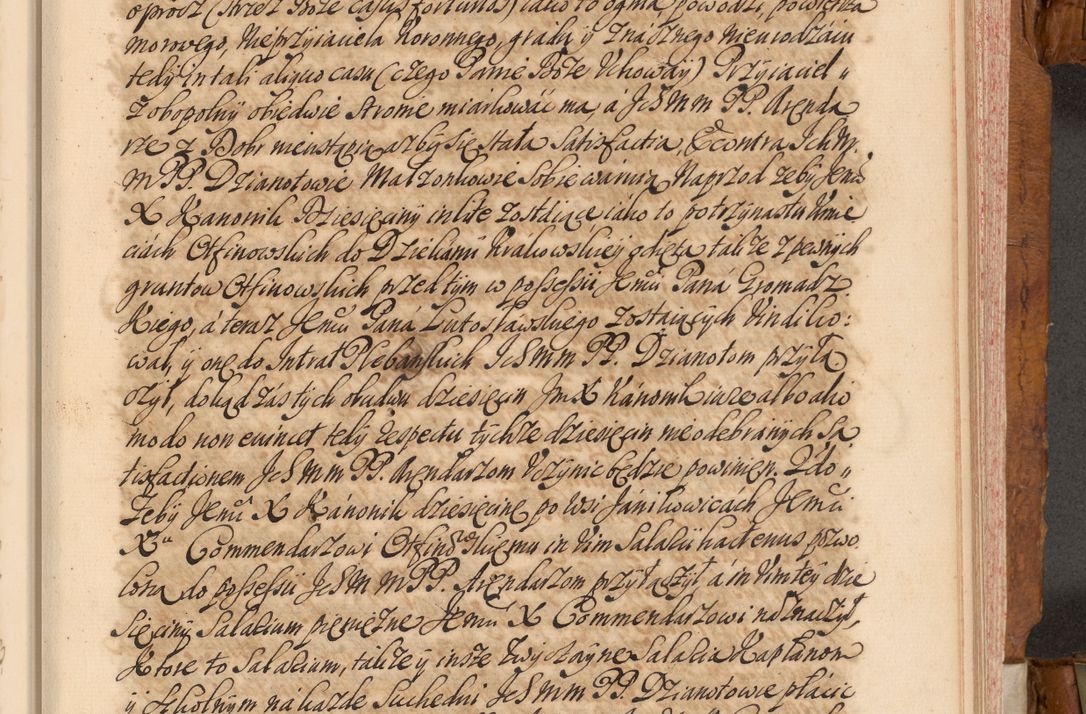 oprocz (strzez Boże casus fortuitus) iako to ognia powodzi, powietrza
morowego, nieprzyiaciela Koronnego, gradu y znacznego nieurodzaiu
tedy in tali aliquo casu (czego Panie Boże Uchoway) Przyiaciel
z obopolny obiedwie stronie miarkować ma, á JchMm PP. Arenda
rze z Dobr nieustąpią ażby się stała satisfactia, Econtra JchM.
m PP. Dzianotowie Małzonkowie sobie waruią Naprzod żeby Jemć
X Kanonik Dziesięciny in lite zostáiące iako to po trzynastu Kmie
ciach Otfinowskich do Dziekanii Krákowskiey także z pewnych
gruntow Otfinowskich przedtym w possessii Jemći Páná Gromadz
kiego, á teraz Jemći Páná Lutosławskiego zostaiących Vindiko:
wał, y one do Intrat Plebanskich JchMm PP. Dzianotom przyłą
czył, dokąd zaś tych obudwu dziesięcin Jm X Kánonik iure albo alio
modo non evincet tedy respectu tychże dziesięcin nieodebranych sa
tisfactionem JchMm PP. Arendarzom uczynić będzie powinien. 2do
Zeby Jemć X Kánonik dziesięcinę po wsi Jánikowicách Jemći
Xu Commendarzowi Otfinowskiemu in vim salarii hactenus pozwo
loną do possessii JchMmPP. Arendarzom przyłączył á in vim tey dzie
sięciny salarium pieniężne Jemći X Commendarzowi náznaczył,
Ktore to salarium, także y insze zwyczayne salaria Kapłanom
y szkolnym ná każde Suchedni JchMm PP. Dzianotowie płácić